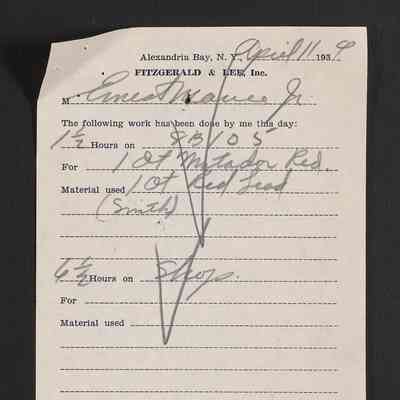 Alexandria Bay, N. Y. April 11 1939
FITZGERALD & LEE, Inc.
M Ernest Jr
The following work has been done by me this day:
1 1/2 Hours on 8 B 105
For 1 Qt Matador Red.
Material used 1 Qt Red Lead
(Smith)
6 1/2 Hours on Shop.
For
Material used